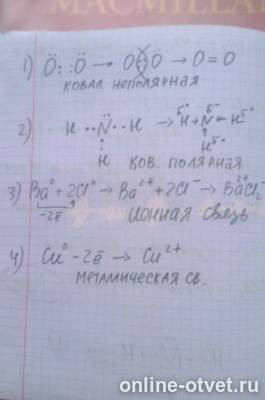 MACMILLAN
1) Ö::Ö → O::O → O=O
ковал. неполярная
2) H··N̈··H → H^δ+→N^δ-←H^δ+
··
↑
H H^δ+
ков. полярная
3) Ba⁰+2Cl⁰→Ba²⁺+2Cl⁻→Ba²⁺Cl₂⁻
-2ē
ионная связь
4) Cu⁰-2ē→Cu²⁺
металмическая св.
online-otvet.ru